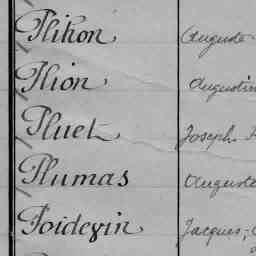 Plihon, Auguste
Plion, Augustin
Pluet, Joseph
Plumas Auguste
Poidevin, Jacques,